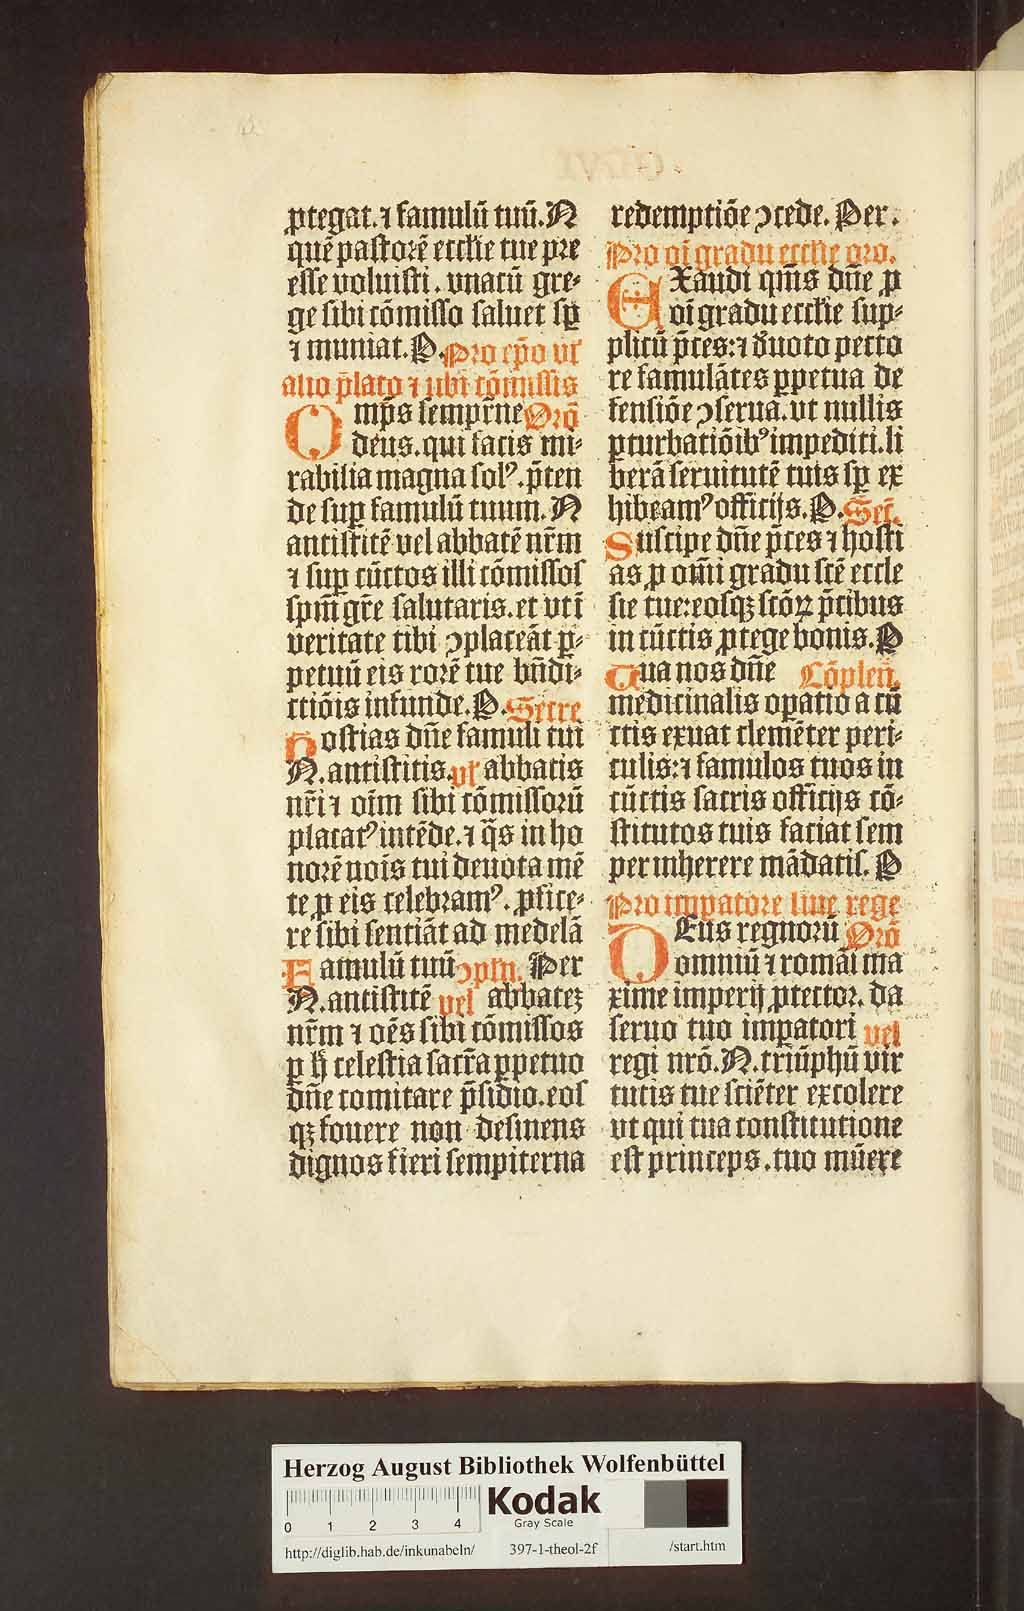 ꝓtegat. ⁊ famulū tuū. N
quē pastorē eccl̄ie tue pre
esse voluisti . vnacū gre⸗
ge sibi cōmisso saluet sꝑ
⁊ muniat. P. Pro ep̄o vl̄
alio p̄lato ⁊ ubi cōmissis
Omp̄s sempr̄ne Orō
deus. qui facis mi⸗
rabilia magna solꝰ. p̄ten
de suꝑ famulū tuum. N
antistitē vel abbatē nr̄m
⁊ suꝑ cūctos illi cōmissos
spm̄ gr̄e salutaris. et vt ī
veritate tibi ꝯplaceāt ꝑ⸗
petuū eis rorē tue bn̄di⸗
ctiōis infunde. P. Secre
Hostias dn̄e famuli tui
N. antistitis. vl̄ abbatis
nr̄i ⁊ oīm sibi cōmissorū
placatꝰ intēde. ⁊ q̄s in ho
norē nois tui deuota mē
te ꝓ eis celebramꝰ. ꝓfice⸗
re sibi sentiāt ad medelā
Famulū tuū ꝯpln̄. Per
N. antistitē vel abbateꝫ
nr̄m ⁊ oēs sibi cōmissos
ꝑ h̄ celestia sacr̄a ꝑpetuo
dn̄e comitare p̄sidio. eos
qꝫ fouere non desinens
dignos fieri sempiterna
redemptiōe ꝯcede. Per .
Pro oī gradu eccl̄ie oro.
EXaudi qm̄s dn̄e ꝓ
oī gradu eccl̄ie sup⸗
plicū p̄ces: ⁊ deuoto pecto
re famulātes ꝑpetua de
fensiōe ꝯserua. vt nullis
ꝑturbatiōibꝰ impediti. li
berā seruitutē tuis sꝑ ex
hibeamꝰ officijs. P. Secr̄.
Suscipe dn̄e p̄ces ⁊ hosti
as ꝓ om̄i gradu scē eccle
sie tue: eosqꝫ scōꝝ p̄cibus
in cūctis ꝓtege bonis. P
Tua nos dn̄e Cōplen̄.
medicinalis oꝑatio a cū
ctis exuat clemēter peri⸗
culis: ⁊ famulos tuos in
cūctis sacris officijs cō⸗
stitutos tuis faciat sem
per inherere mādatis. P
Pro imꝑatore siue rege
DEus regnorū Orō
omniū ⁊ romāi ma
xime imperij ꝓtector. da
seruo tuo imꝑatori vel
regi nrō. N. triūphū vir
tutis tue sciēter excolere
vt qui tua constitutione
est princeps . tuo mūere
Herzog August Bibliothek Wolfenbüttel
0 1 2 3 4
Kodak
Gray Scale
http://diglib.hab.de/inkunabeln/ 397-1-theol-2f /start.htm